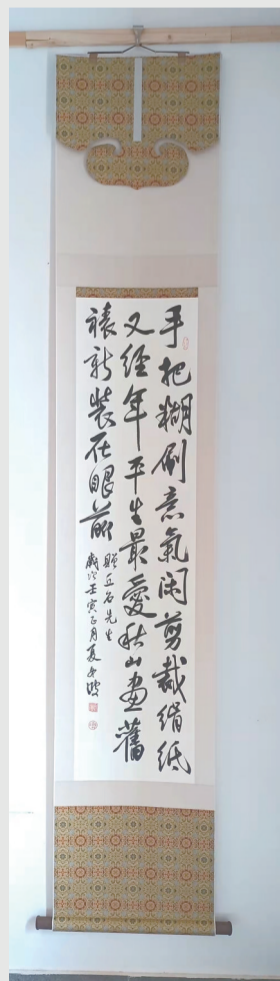 手把糊刷意氣闲剪裁絹紙
又經年平生最愛秋山畫舊
裱新裝在眼前
先生
歲次壬寅正月夏